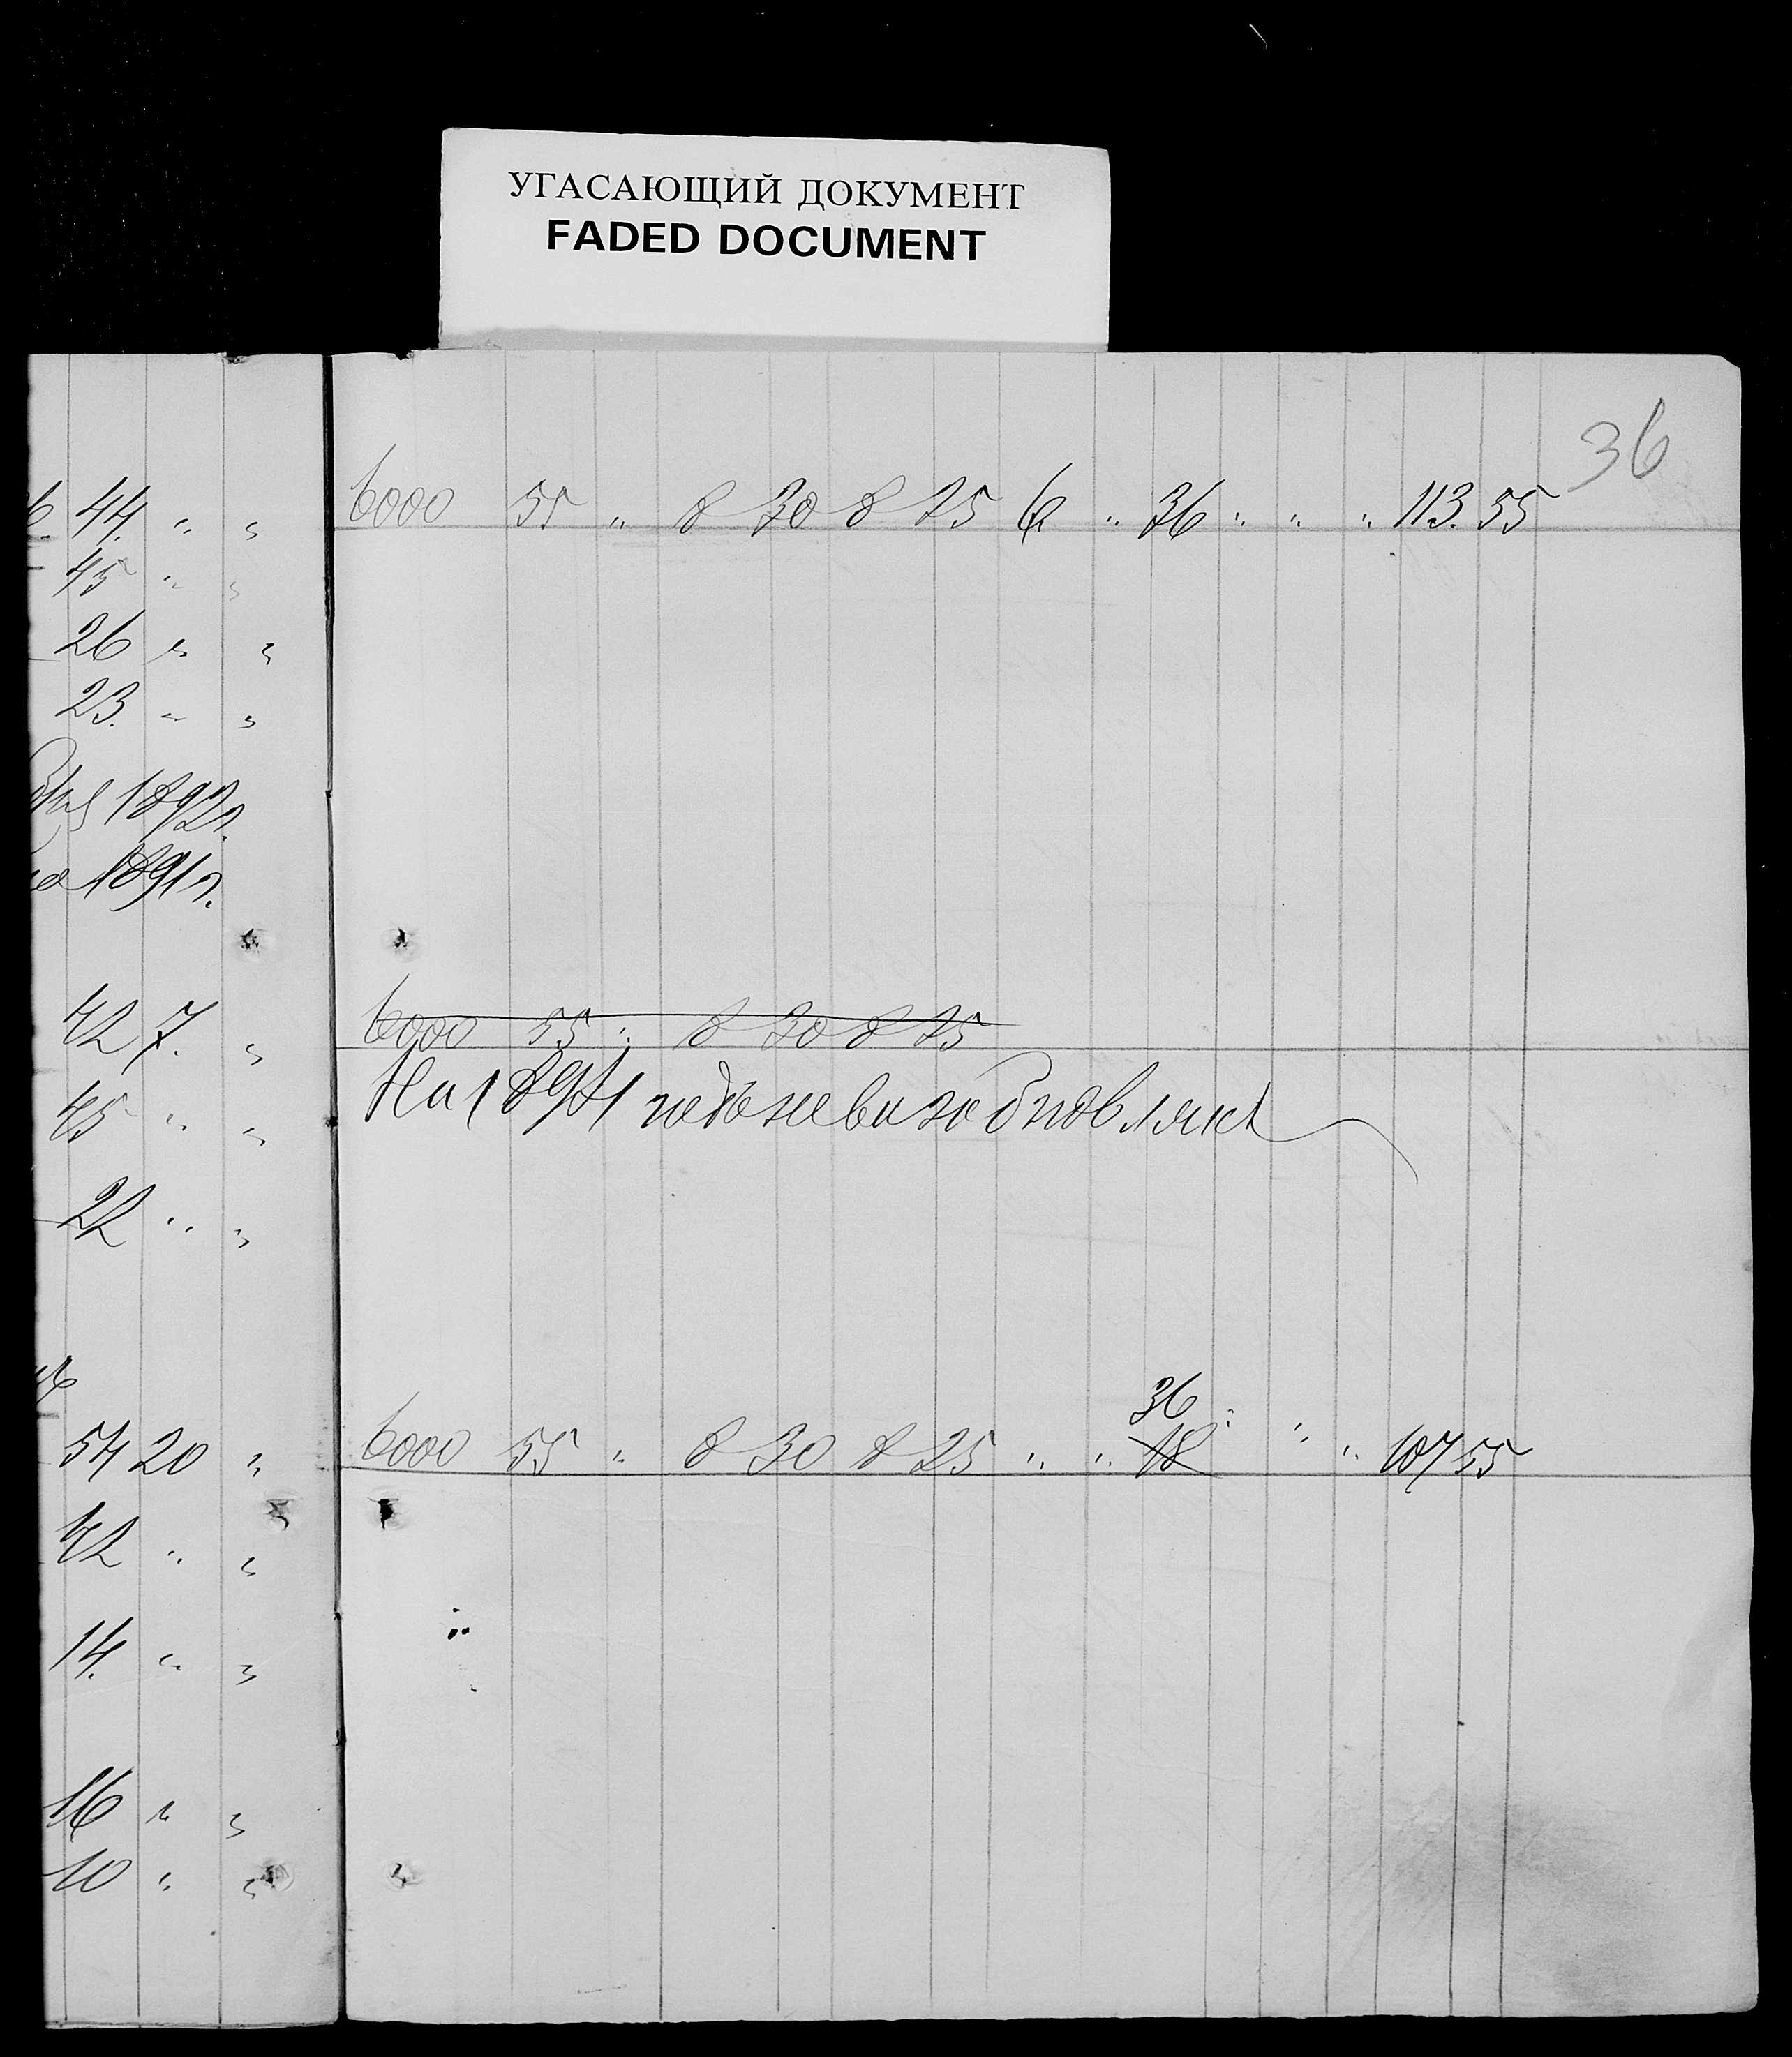 УГАСАЮЩИЙ ДОКУМЕНТ
FADED DOCUMENT
36
44. " "
45 " "
26 " "
23. " "
1892 г.
1891 г.
42 7. "
45 " "
22 " "
54 20 "
42 " "
14. " "
16 " "
10 " "
6000 55 " 8 30 8 25 6 " 36 " " " 113. 55
6000 55 " 8 30 8 25
На 1891 годъ не возобновлялъ
36
6000 55 " 8 30 8 25 " " 18 " " " 107 55